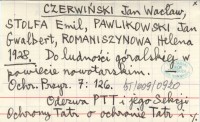 CZERWIŃSKI Jan Wacław,
STOLFA Emil, PAWLIKOWSKI Jan
Gwalbert, ROMANISZYNOWA Helena
1928. Do ludności góralskiej w
powiecie nowotarskim.
Ochr. Przyr. 7: 126.
Odezwa PTT i jego Sekcji
Ochrony Tatr o ochronie Tatr